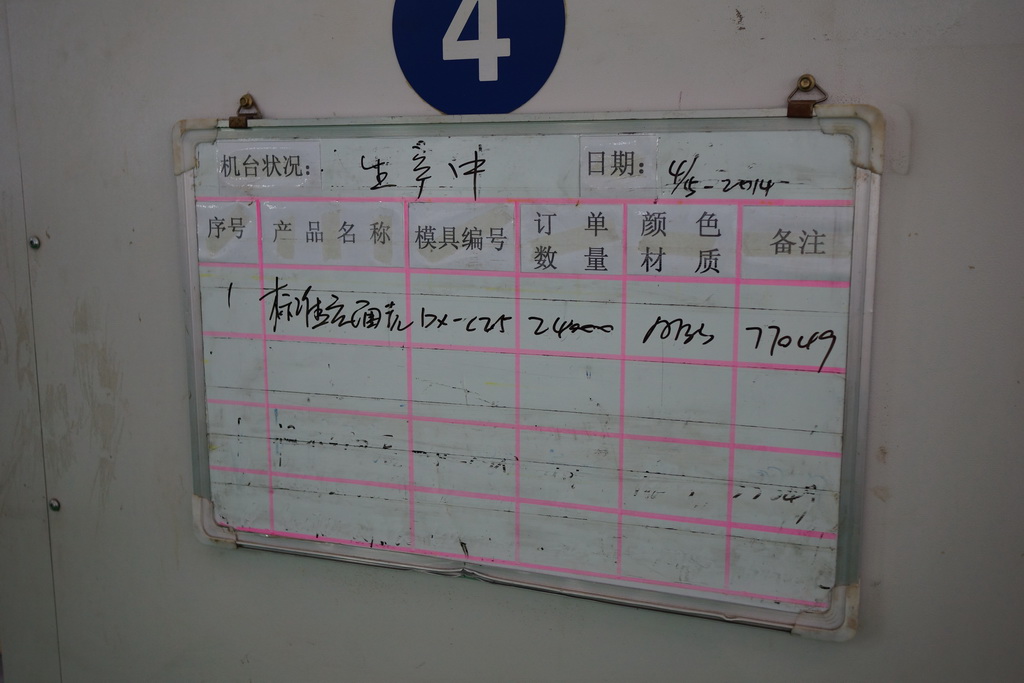 4
机台状况： 生产中 日期： 4/5-2014
序号 产品名称 模具编号 订单数量 颜色材质 备注
1 DX-C25 24000 ABS 77049